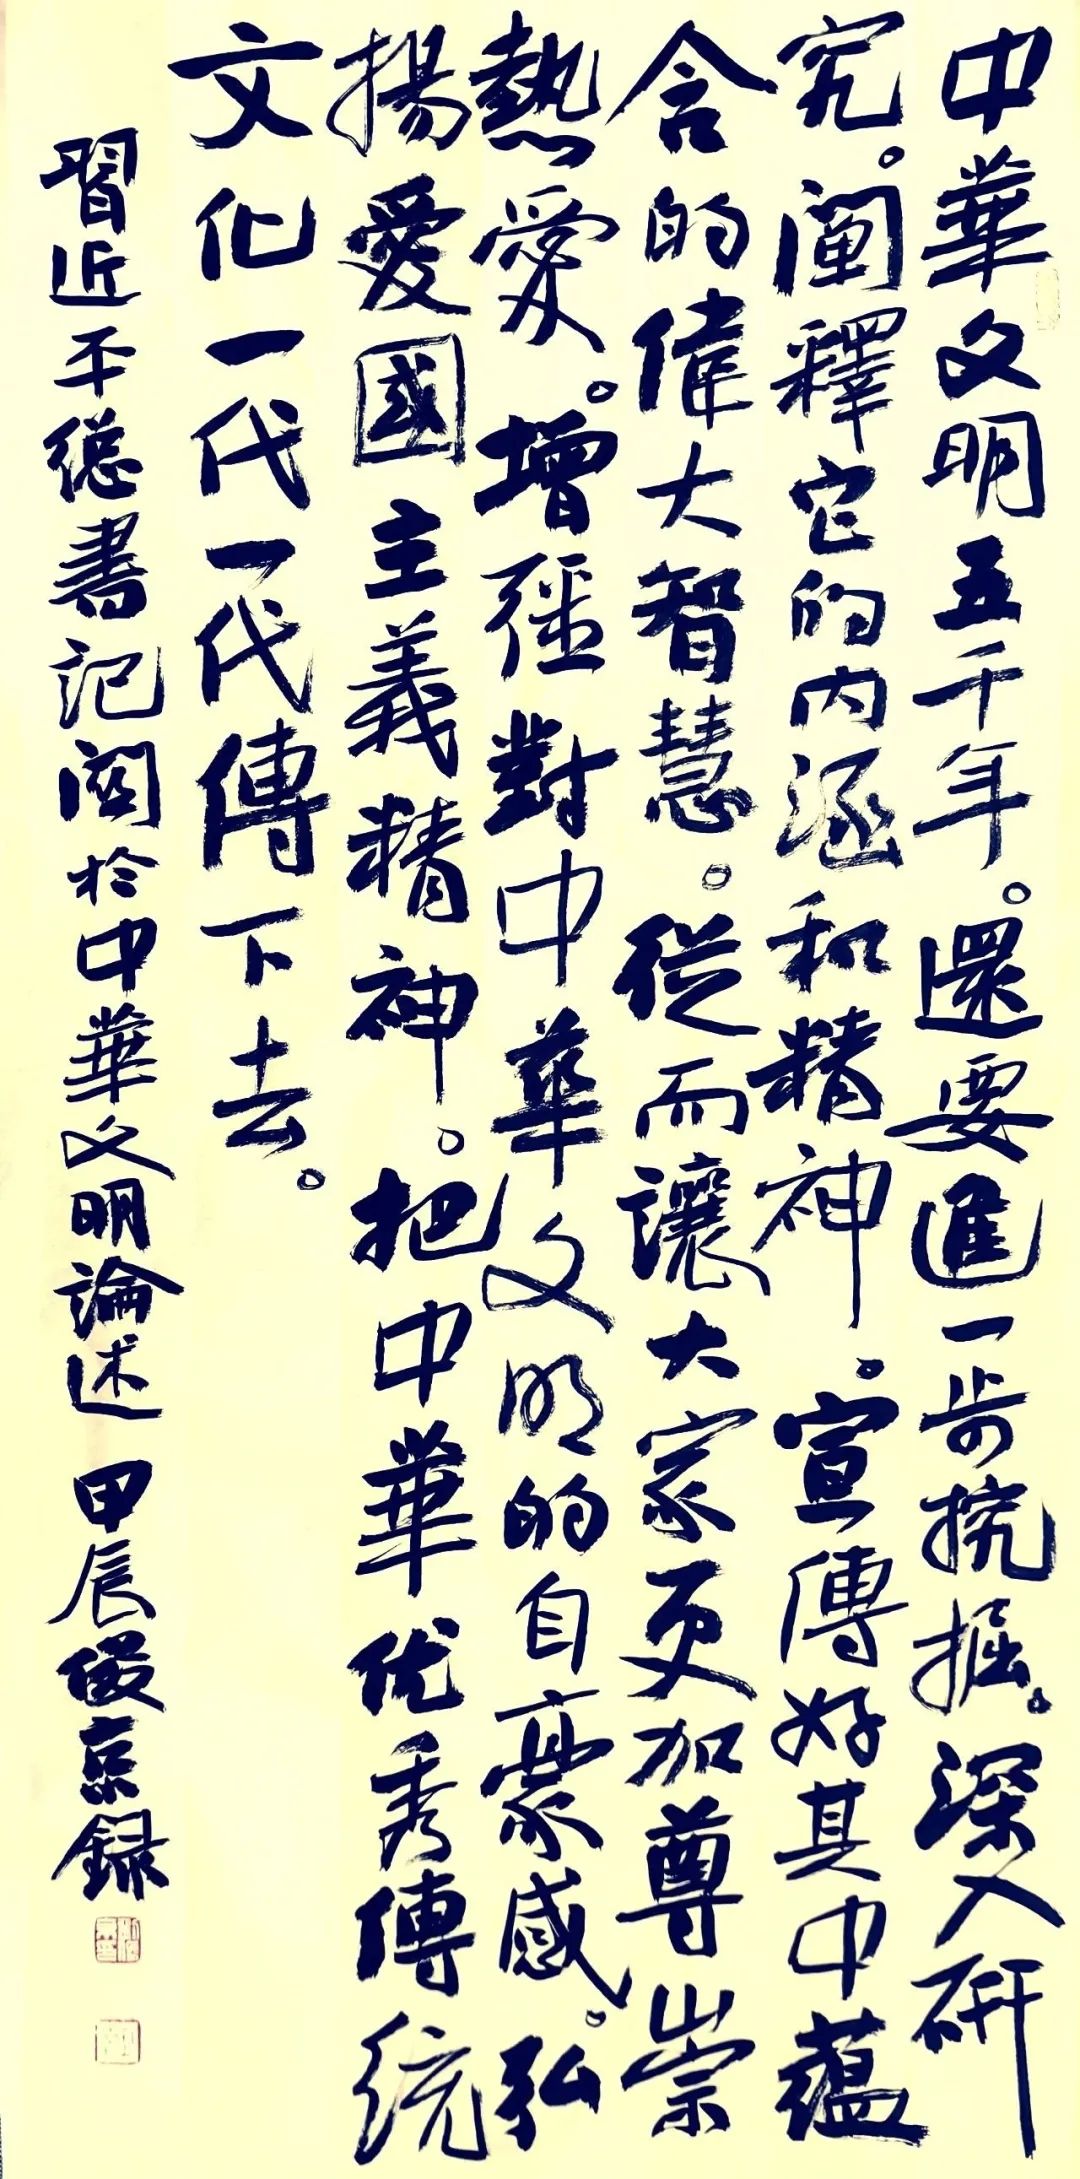 中華文明五千年。還要進一步挖掘。深入研
究。闡釋它的内涵和精神。宣傳好其中蘊
含的偉大智慧。從而讓大家更加尊崇
熱愛。增强對中華文明的自豪感。弘
揚愛國主義精神。把中華优秀傳統
文化一代一代傳下去。
習近平總書記関於中華文明論述 甲辰 京録